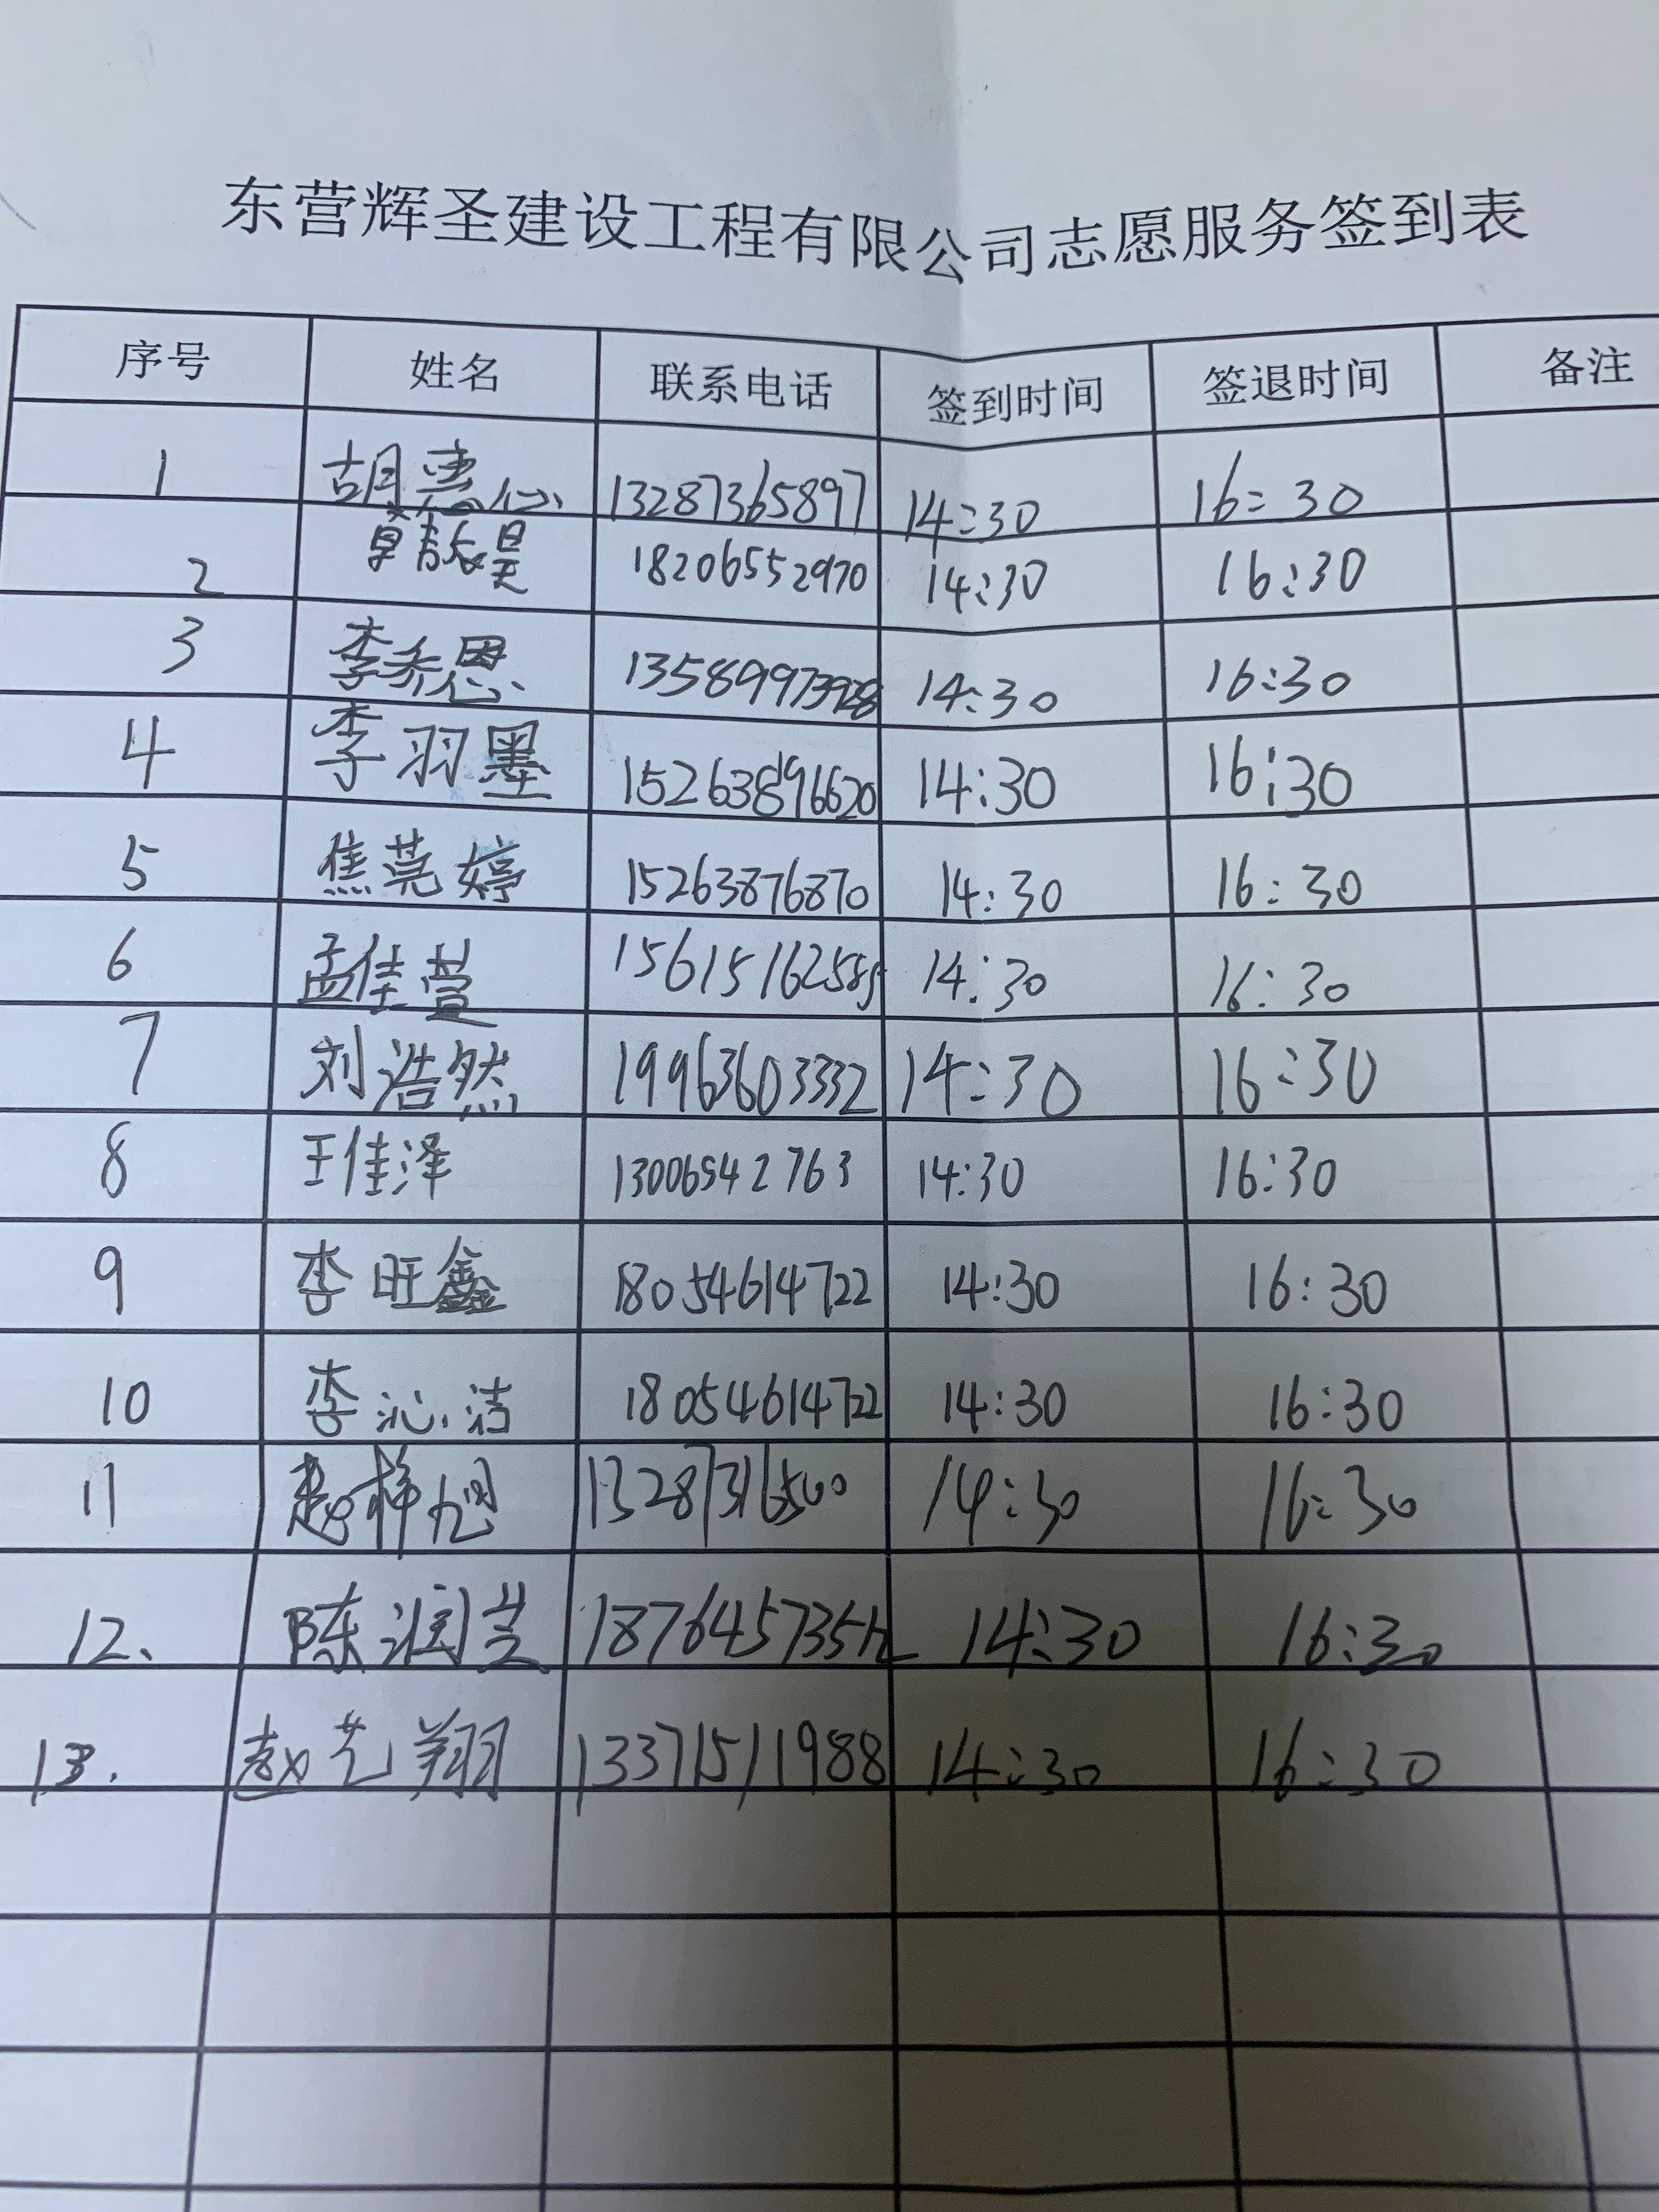 东营辉圣建设工程有限公司志愿服务签到表
序号 姓名 联系电话 签到时间 签退时间 备注
1 胡惠心 13287365897 14:30 16:30
2 18206552970 14:30 16:30
3 李乔恩 14:30 16:30
4 李羽墨 15263896620 14:30 16:30
5 焦莞婷 15263876870 14:30 16:30
6 孟佳萱 14:30 16:30
7 刘浩然 19963603332 14:30 16:30
8 王佳泽 13006542763 14:30 16:30
9 李旺鑫 18054614722 14:30 16:30
10 李沁洁 18054614722 14:30 16:30
11 赵梓旭 13287316500 14:30 16:30
12、 陈润芝 14:30 16:30
13. 赵艺翔 13371511988 14:30 16:30